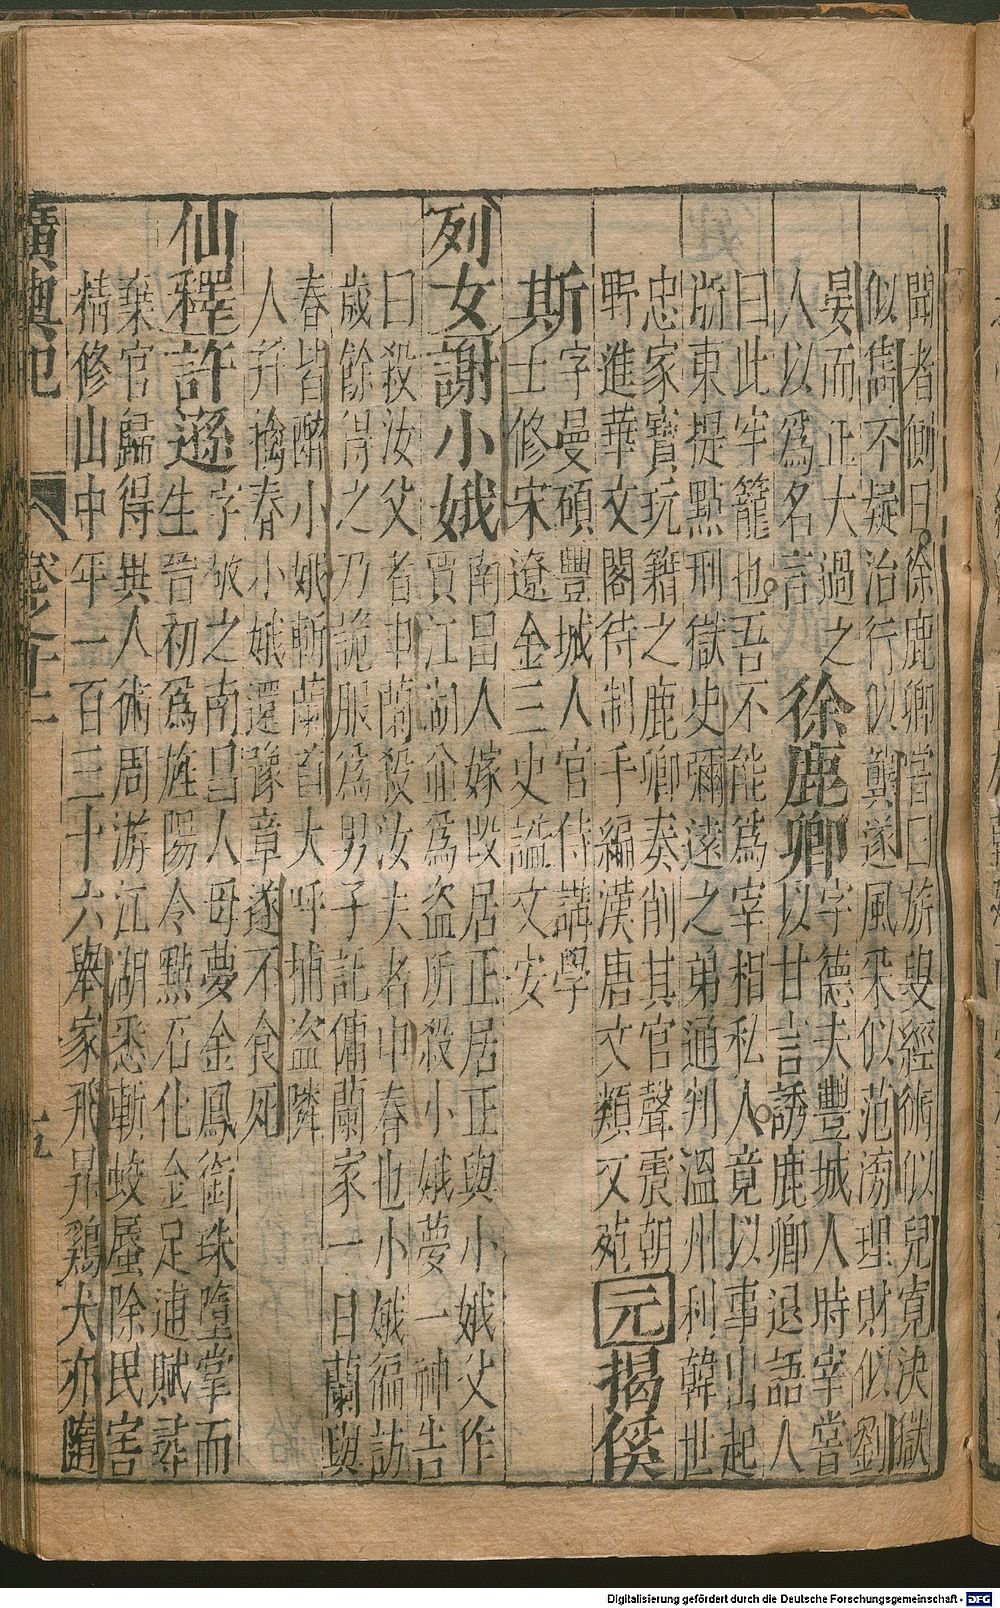 聞者側目徐鹿卿嘗曰族叟經術似兒寬決獄
似雋不疑治行似龔遂風采似范滂理財似劉
晏而正大過之 徐鹿卿字德夫豐城人時宰嘗
人以爲名言 以甘言誘鹿卿退語人
曰此牢籠也吾不能爲宰相私人竟以事出起
浙東提點刑獄史彌遠之弟通判溫州利韓世
忠家寶玩籍之鹿卿奏削其官聲震朝
野進華文閣待制手編漢唐文類文苑 元 揭傒
斯字曼碩豐城人官侍講學
士修宋遼金三史謚文安
列女謝小娥南昌人嫁段居正居正與小娥父作
賈江湖並爲盜所殺小娥夢一神告
曰殺汝父者申蘭殺汝夫者申春也小娥徧訪
歲餘得之乃詭服爲男子託傭蘭家一日蘭與
春皆醉小娥斬蘭首大呼捕盜隣
人并擒春小娥還豫章遂不食死
仙釋許遜字敬之南昌人母夢金鳳銜珠墮掌而
生晉初爲旌陽令點石化金足逋賦尋
棄官歸得異人術周游江湖悉斬蛟蜃除民害
精修山中年一百三十六舉家飛昇鷄犬亦隨
廣輿記 卷之十二 十五